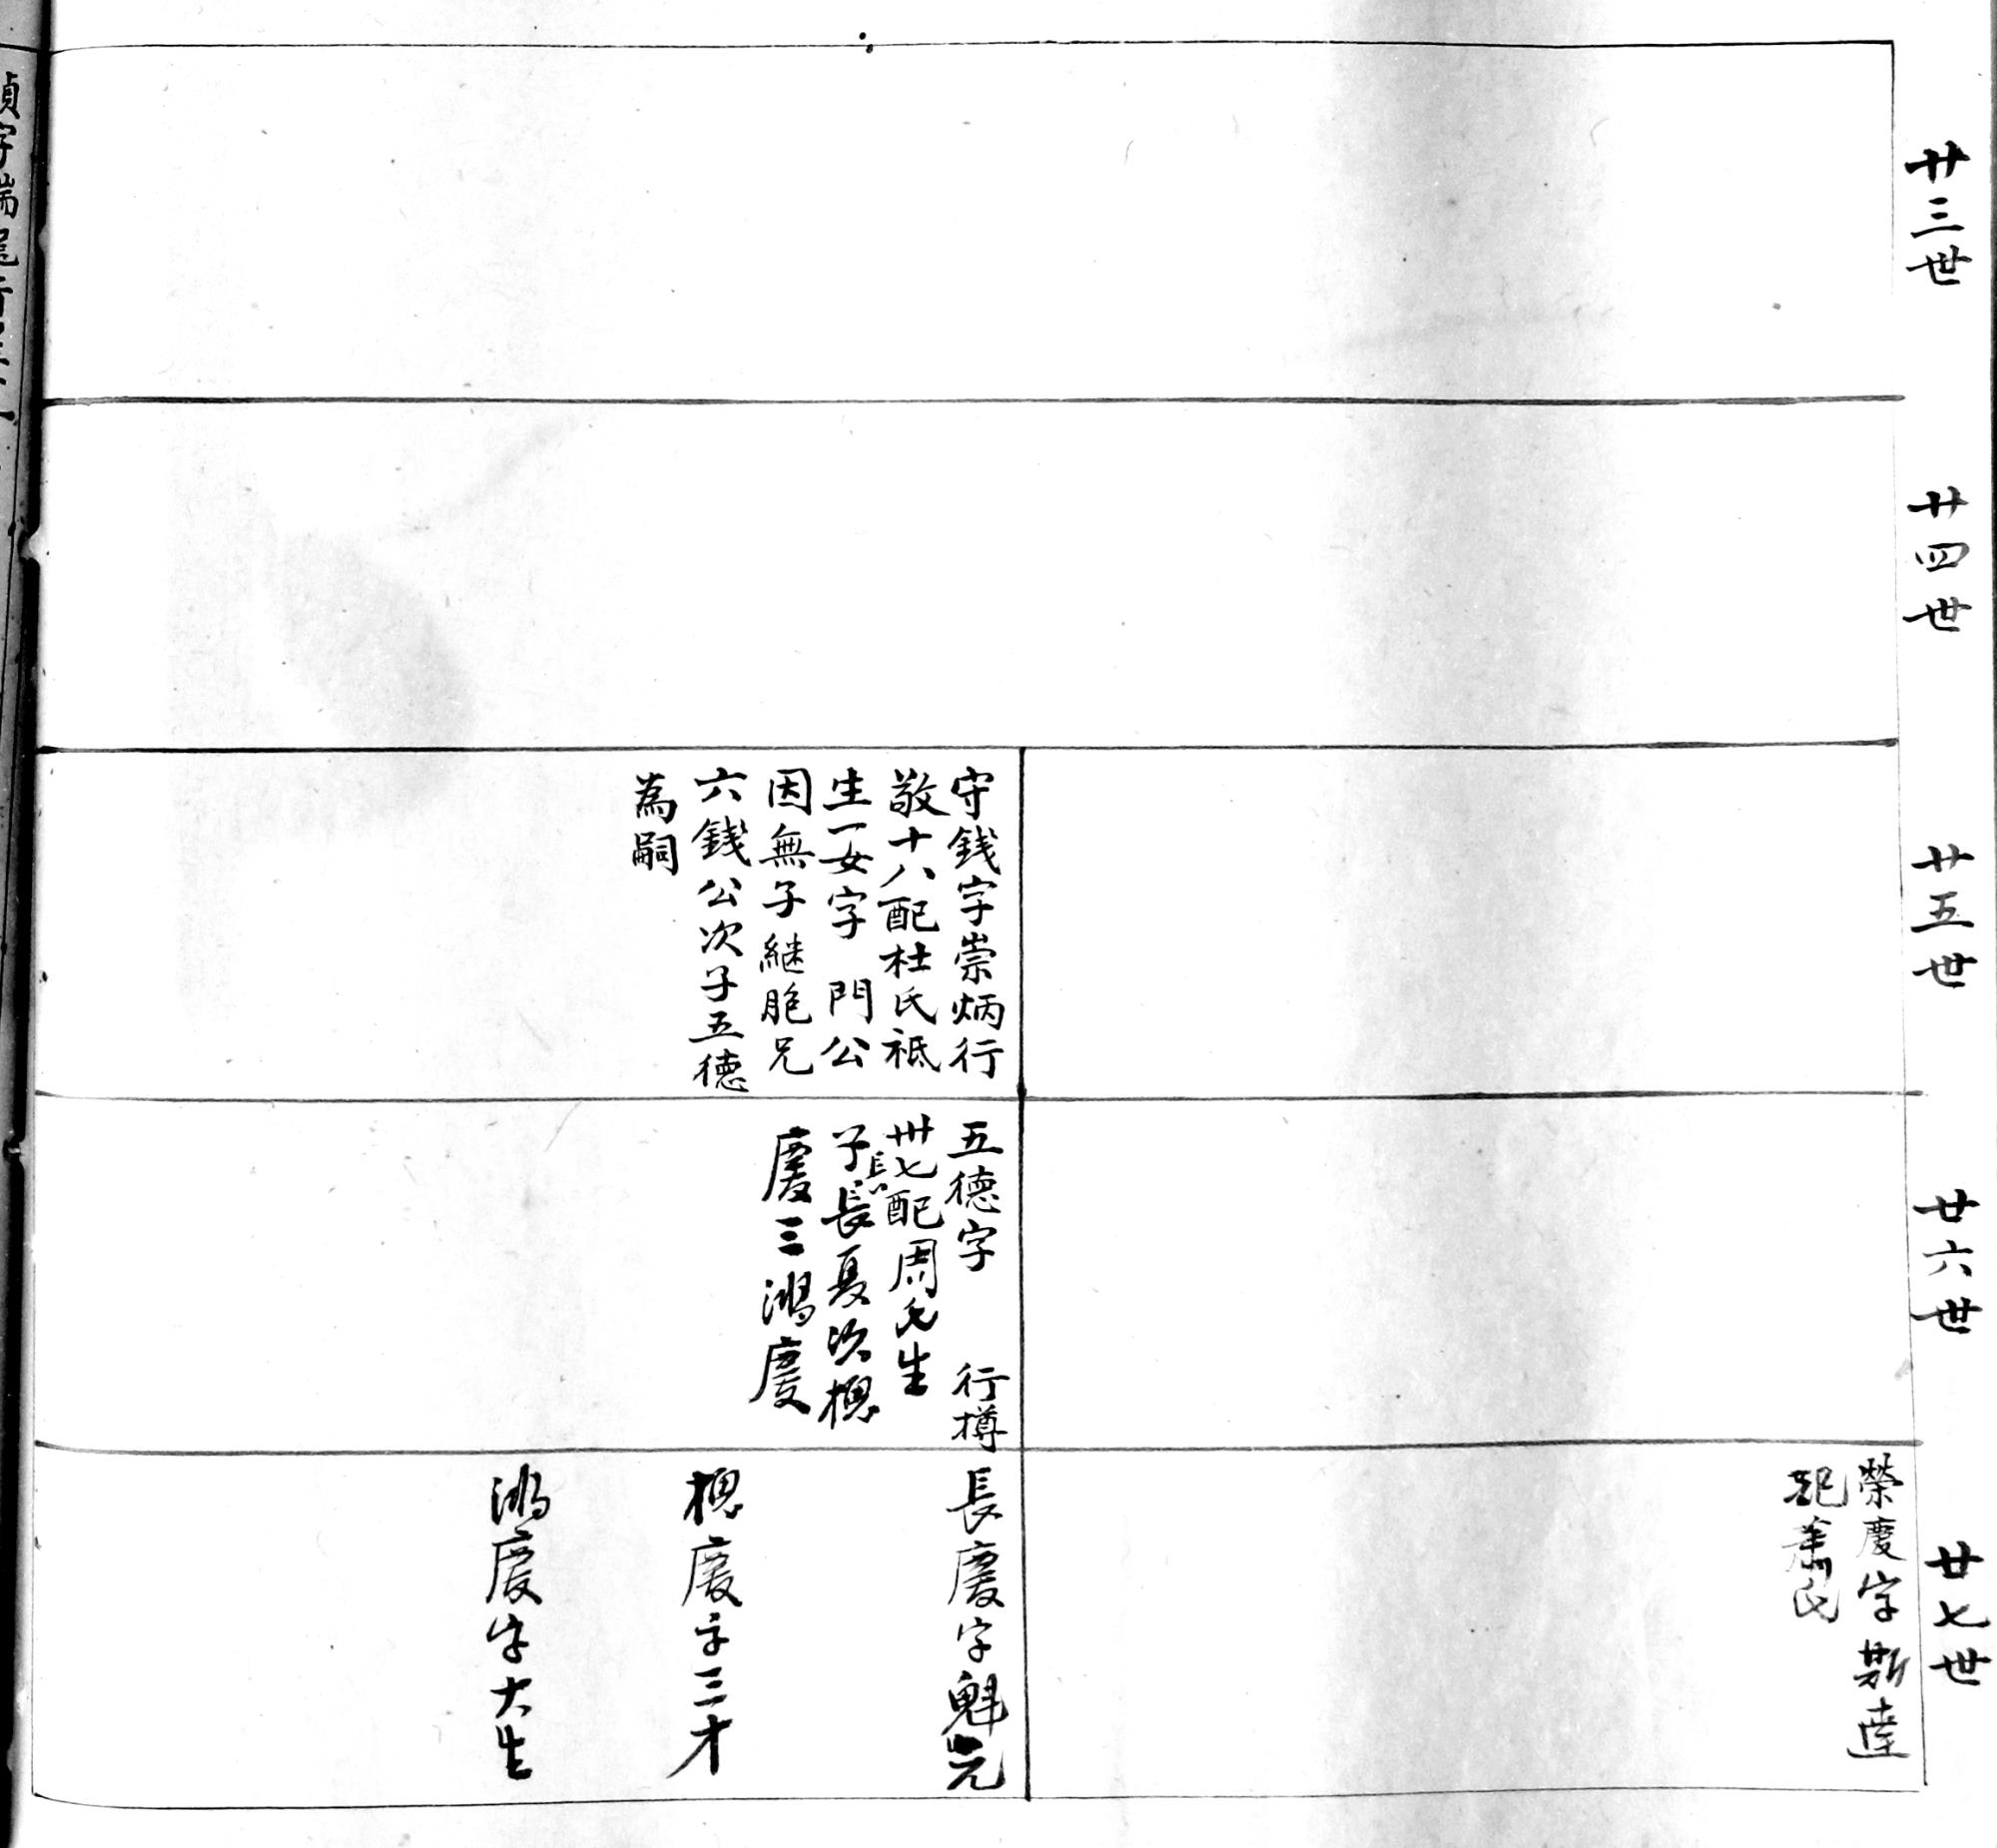 廿三世
廿四世
廿五世
守銭字崇炳行
敬十八配杜氏祗
生一女字 門公
因無子継胞兄
六錢公次子五德
為嗣
廿六世
五德字 行樽
卅七配周氏生
子長慶次楒
慶三鴻慶
廿七世
榮慶字斯達
配蕭氏
長慶字魁元
楒慶字三才
鴻慶字大生